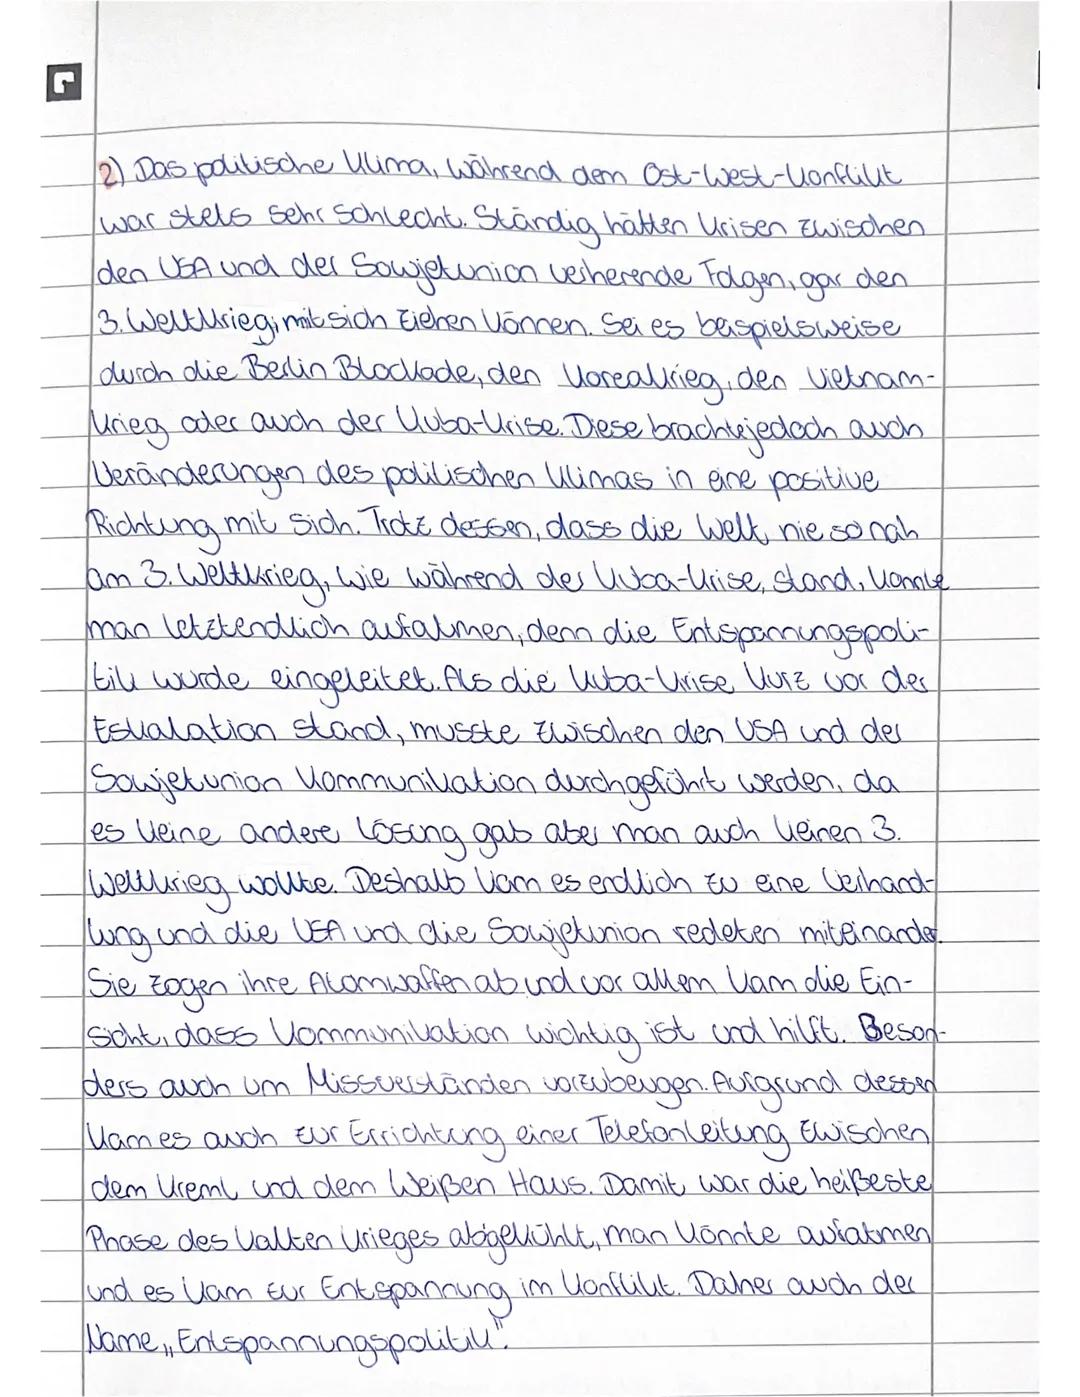 2) Das politische Klima, während dem Ost-West-Konflikt
war stets sehr schlecht. Ständig hätten Krisen zwischen
den USA und der Sowjetunion verherende Folgen, gar den
3. Weltkrieg, mit sich ziehen können. Sei es beispielsweise
durch die Berlin Blockade, den Koreakrieg, den Vietnam-
krieg oder auch der Kuba-Krise. Diese brachte jedoch auch
Veränderungen des politischen Klimas in eine positive
Richtung mit sich. Trotz dessen, dass die Welt nie so nah
am 3. Weltkrieg, wie während der Kuba-Krise, stand, konnte
man letztendlich aufatmen, denn die Entspannungspoli-
tik wurde eingeleitet. Als die Kuba-Krise kurz vor der
Eskalation stand, musste zwischen den USA und der
Sowjetunion Kommunikation durchgeführt werden, da
es keine andere Lösung gab aber man auch keinen 3.
Weltkrieg wollte. Deshalb kam es endlich zu eine Verhand-
lung und die USA und die Sowjetunion redeten miteinander.
Sie zogen ihre Atomwaffen ab und vor allem kam die Ein-
sicht, dass Kommunikation wichtig ist und hilft. Beson-
ders auch um Missverständen vorzubeugen. Aufgrund dessen
kam es auch zur Errichtung einer Telefonleitung zwischen
dem Kreml und dem Weißen Haus. Damit war die heißeste
Phase des kalten Krieges abgekühlt, man könnte aufatmen
und es kam zur Entspannung im Konflikt. Daher auch der
Name „Entspannungspolitik".